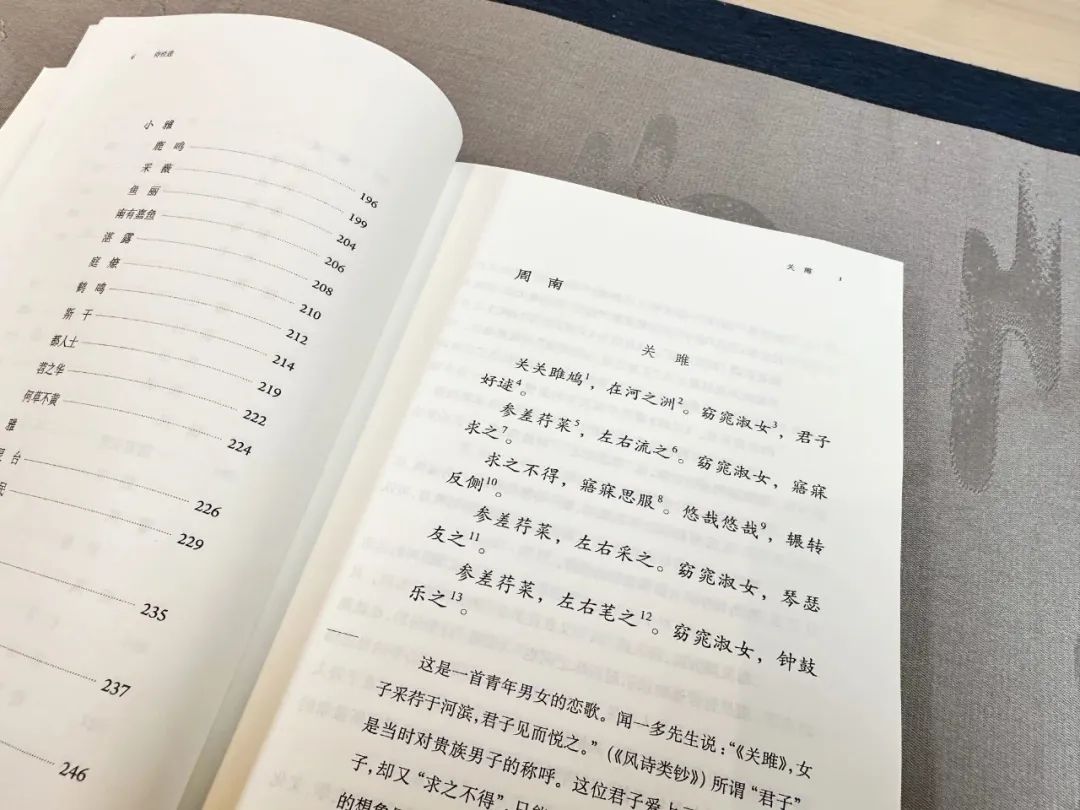 6 诗经选
小雅
鹿鸣 196
采薇 199
鱼丽 204
南有嘉鱼 206
湛露 208
庭燎 210
鹤鸣 212
斯干 214
都人士 219
苕之华 222
何草不黄 224
雅
台 226
民 229
235
237
246
关雎 1
周南
关雎
关关雎鸠¹，在河之洲²。窈窕淑女³，君子
好逑⁴。
参差荇菜⁵，左右流之⁶。窈窕淑女，寤寐
求之⁷。
求之不得，寤寐思服⁸。悠哉悠哉⁹，辗转
反侧¹⁰。
参差荇菜，左右采之。窈窕淑女，琴瑟
友之¹¹。
参差荇菜，左右芼之¹²。窈窕淑女，钟鼓
乐之¹³。
这是一首青年男女的恋歌。闻一多先生说：“《关雎》，女
子采荇于河滨，君子见而悦之。”（《风诗类钞》）所谓“君子”
是当时对贵族男子的称呼。这位君子爱上
子，却又“求之不得”，只能
的想象